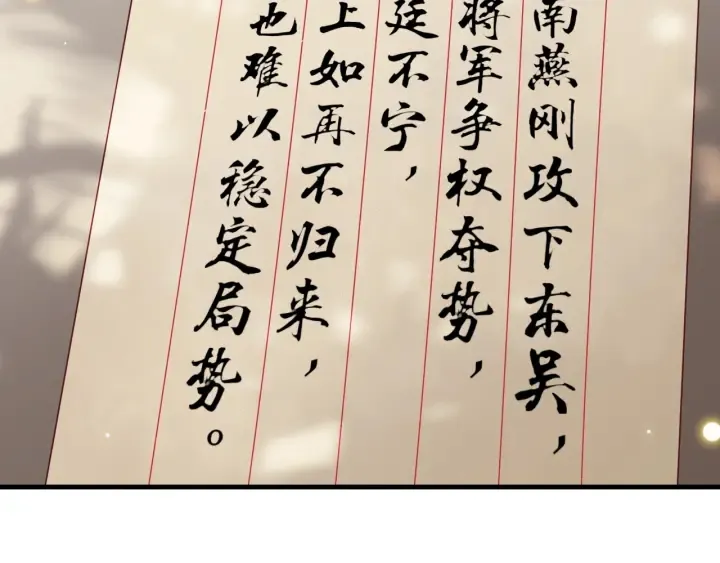 南燕刚攻下东吴，
将军争权夺势，
廷不宁，
上如再不归来，
也难以稳定局势。